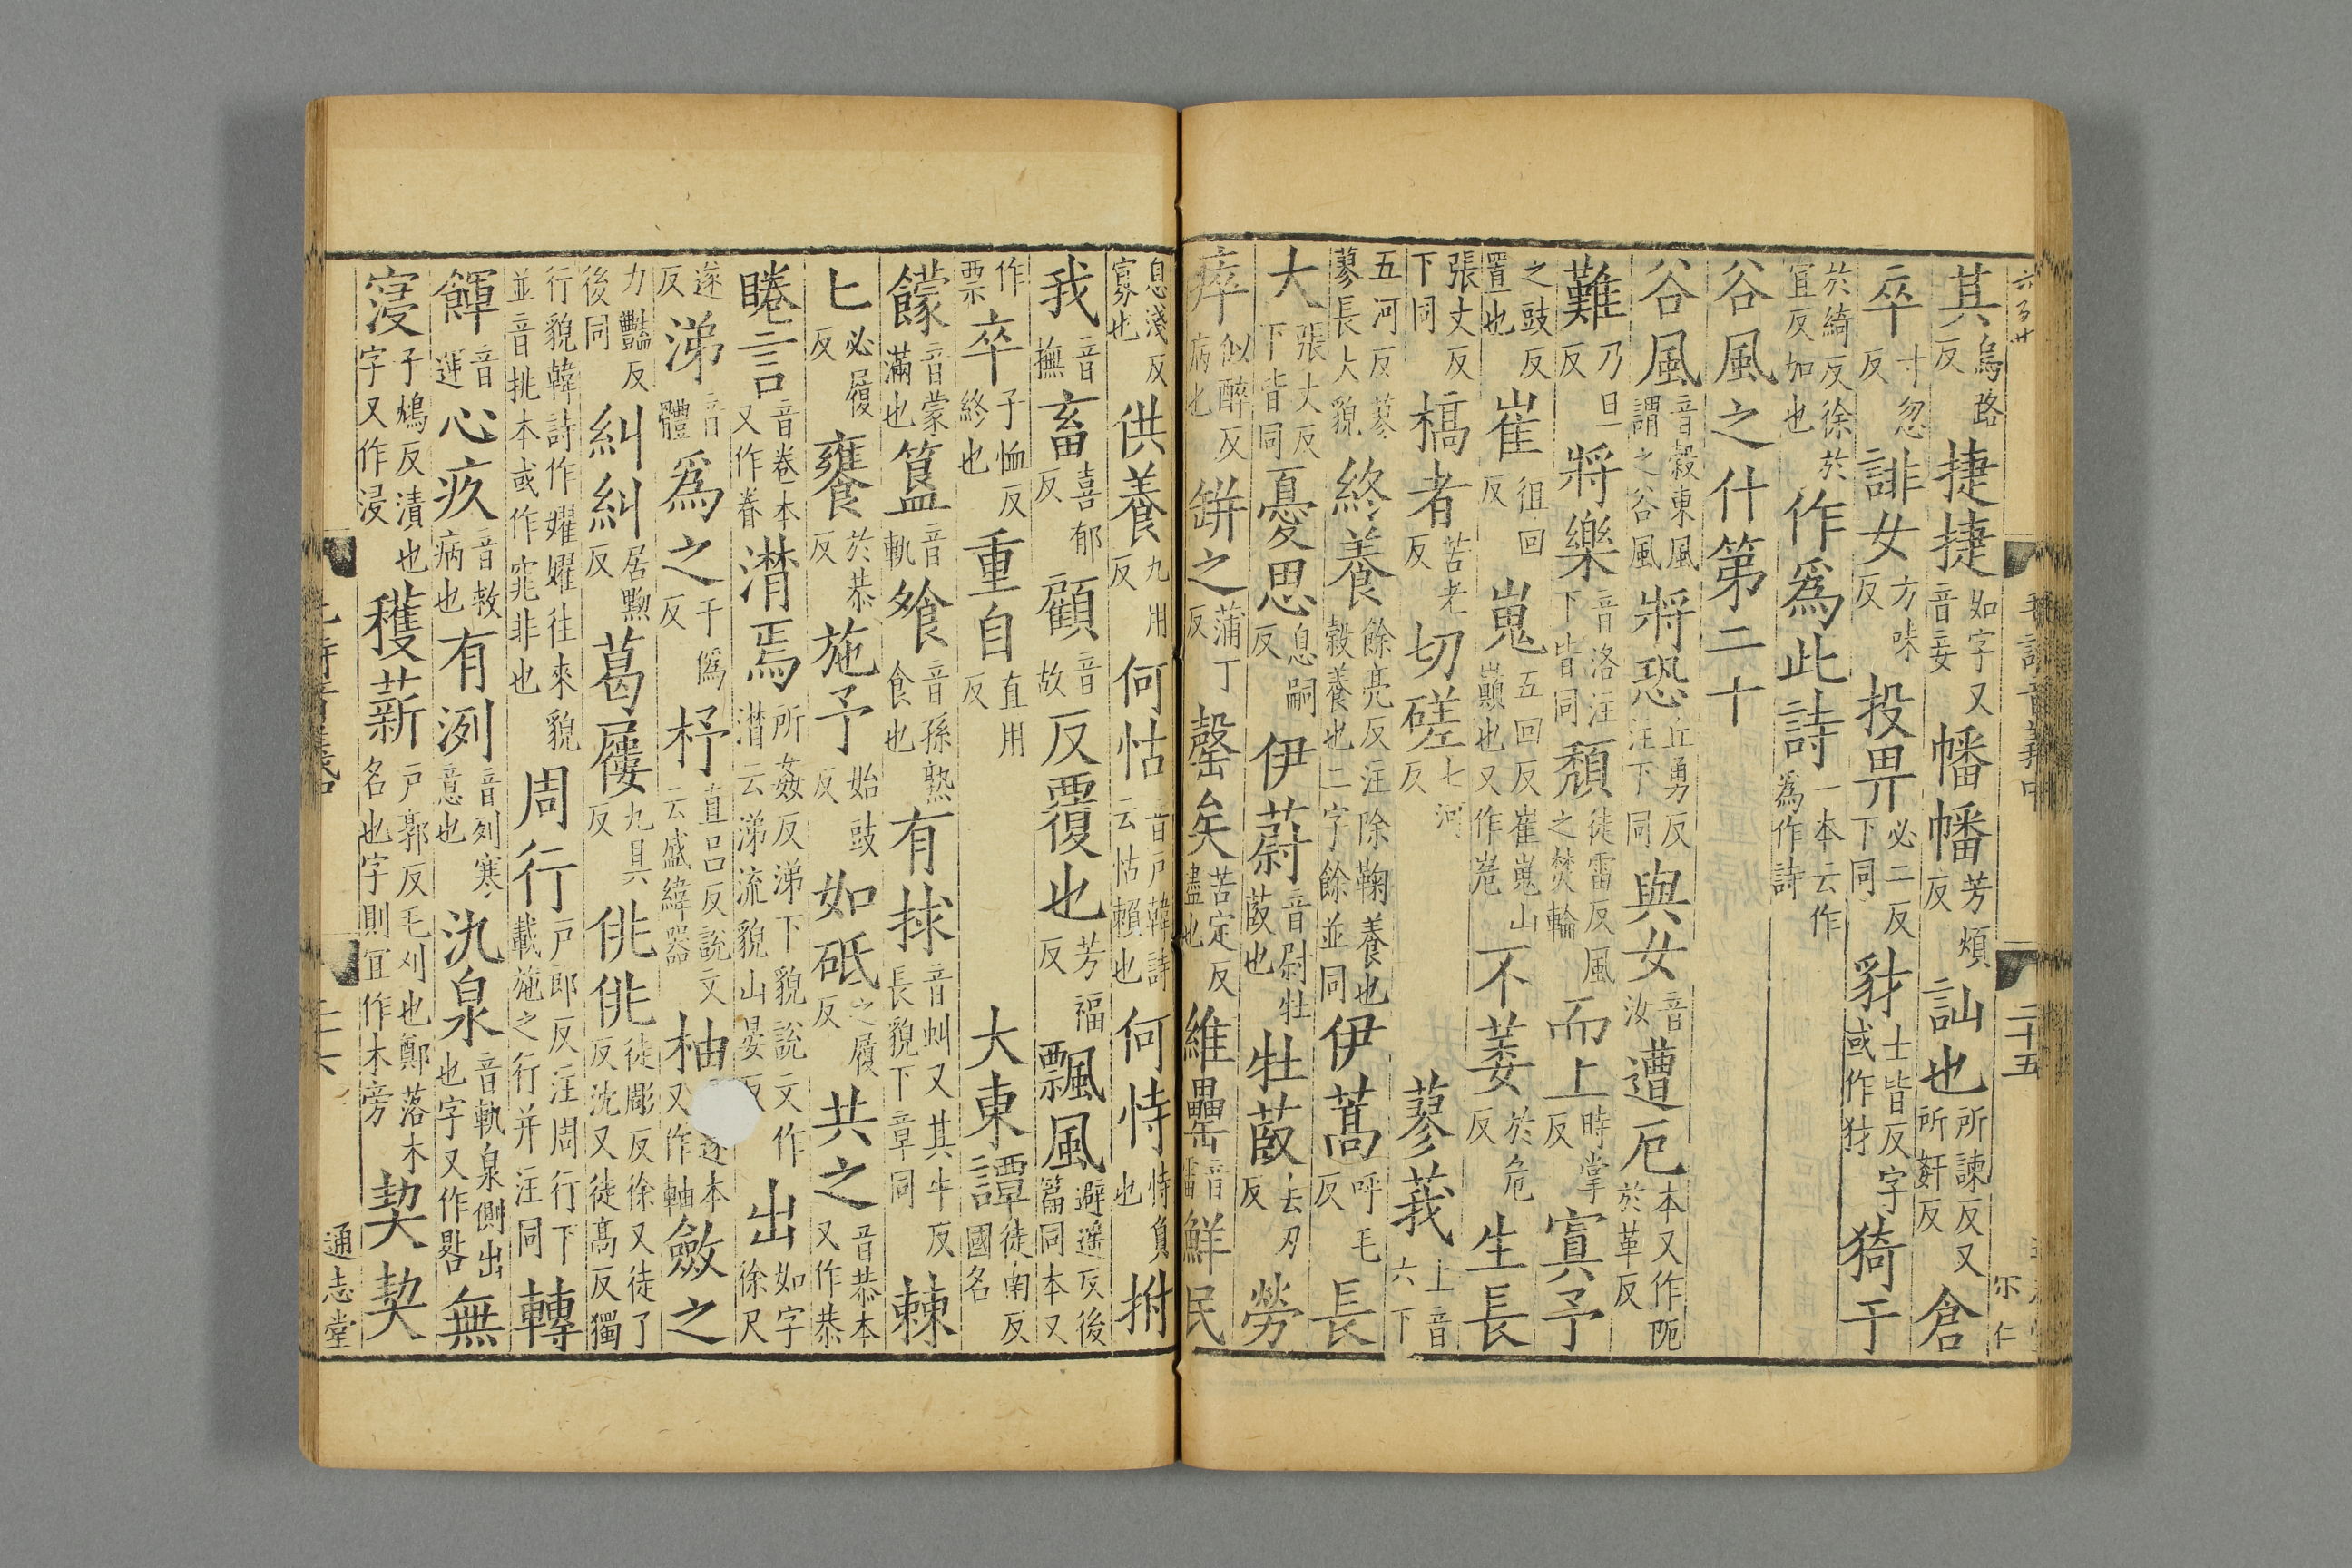 其烏路反捷捷如字又音妾幡幡芳煩反訕也所諫反又所姧反倉
卒寸忽反誹女方味反投畀必二反下同豺士皆反字或作犲猗于
於綺反徐於宜反加也作爲此詩一本云作爲作詩
谷風之什第二十
谷風音穀東風謂之谷風將恐丘勇反注下同與女音汝遭厄本又作阨於革反
難乃旦反將樂音洛注下皆同頹徒雷反風之焚輪而上時掌反寘予
之豉反置也崔徂回反嵬五回反崔嵬山巔也又作嵬不萎於危反生長
張丈反下同槁者苦老反切磋七河反蓼莪上音六下
五河反蓼蓼長大貌終養餘亮反注除鞠養也穀養也二字餘並同伊蒿呼毛反長
大張丈反下皆同憂思息嗣反伊蔚音尉牡菣也牡菣去刃反勞
瘁似醉反病也缾之蒲丁反罄矣苦定反盡也維罍音雷鮮民
息淺反寡也供養九用反何怙音戶韓詩云怙賴也何恃恃負也拊
我音撫畜喜郁反顧音故反覆也芳福反飄風避遥反後篇同本又
作票卒子恤反終也重自直用反大東譚徒南反國名
饛音蒙滿也簋音軌飧音孫熟食也有捄音虯又其牛反長貌下章同棘
匕必履反饔於恭反施予始豉反如砥之履反共之音恭本又作恭
睠言音卷本又作眷潸焉所姦反涕下貌說文作潸云涕流貌山晏反出如字徐尺
遂反涕音體爲之于僞反杼直吕反說文云盛緯器柚音逐本又作軸斂之
力豔反後同糾糾居黝反葛屨九具反佻佻徒彫反徐又徒了反沈又徒高反獨
行貌韓詩作嬥嬥往來貌並音挑本或作窕非也周行戸郎反注周行下載施之行并注同轉
餫音運心疚音救病也有洌音列寒意也氿泉音軌泉側出也字又作晷無
寖子鴆反漬也字又作浸穫薪戸郭反毛刈也鄭落木名也字則宜作木旁契契
二十五
通志堂